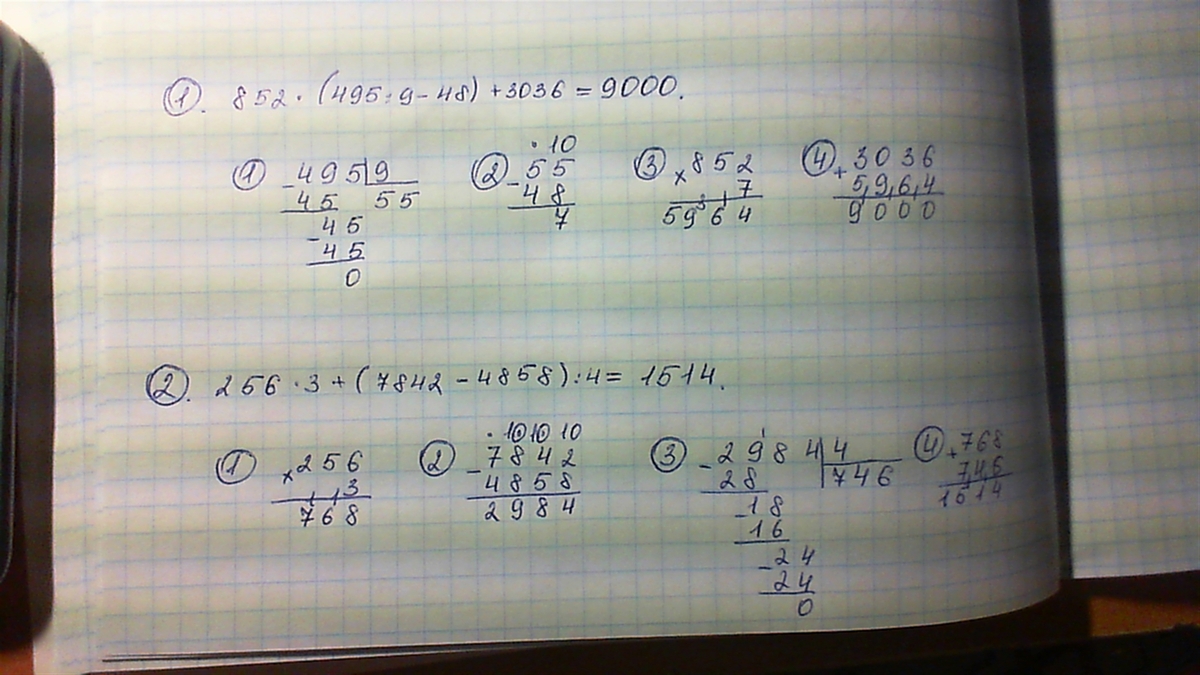 1. 852 · (495 : 9 - 48) + 3036 = 9000.
1 - 495 | 9 2 · 10 3 × 852 4 + 3036
45 55 - 55 7 5964
- 45 48 5964 9000
45 7
0
2. 256 · 3 + (7842 - 4858) : 4 = 1514.
1 × 256 2 · 10 10 10 3 - 2984 | 4 4 + 768
3 - 7842 28 746 746
768 4858 - 18 1514
2984 16
- 24
24
0